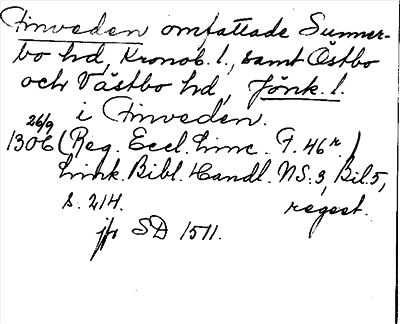 Finveden omfattade Sunner-
bo hd, Kronob. l., samt Östbo
och Västbo hd, Jönk. l.
i Finveden.
26/9
1306 (Reg. Eccl. Linc. F. 46r.)
Link. Bibl. Handl. NS. 3, Bil. 5,
s. 214. regest.
jfr SD 1511.